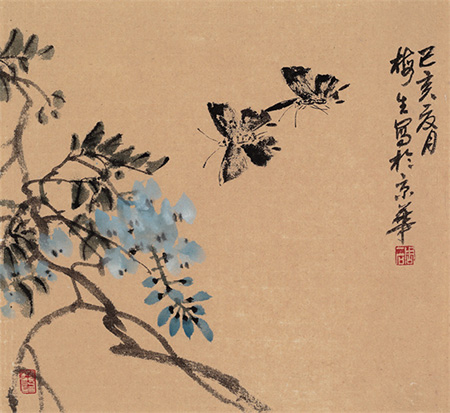 己亥夏月
梅生写於京華